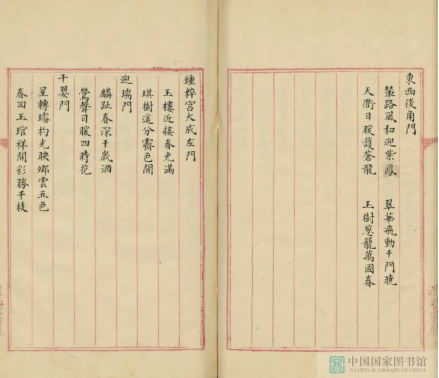 東西後角門
輦路風和迎紫鳳 翠華飛動千門曉
天衢日暖護蒼龍 玉樹蔥蘢萬國春
鍾粹宮大成左門
玉樓近接春光滿
琪樹遥分霽色開
迎瑞門
麟趾春深千歲酒
鶯聲日暖四時花
千嬰門
星轉璿杓光映鄉雲五色
春回玉琯祥開彩勝千枝
中国国家图书馆
NATIONAL LIBRARY OF CHINA